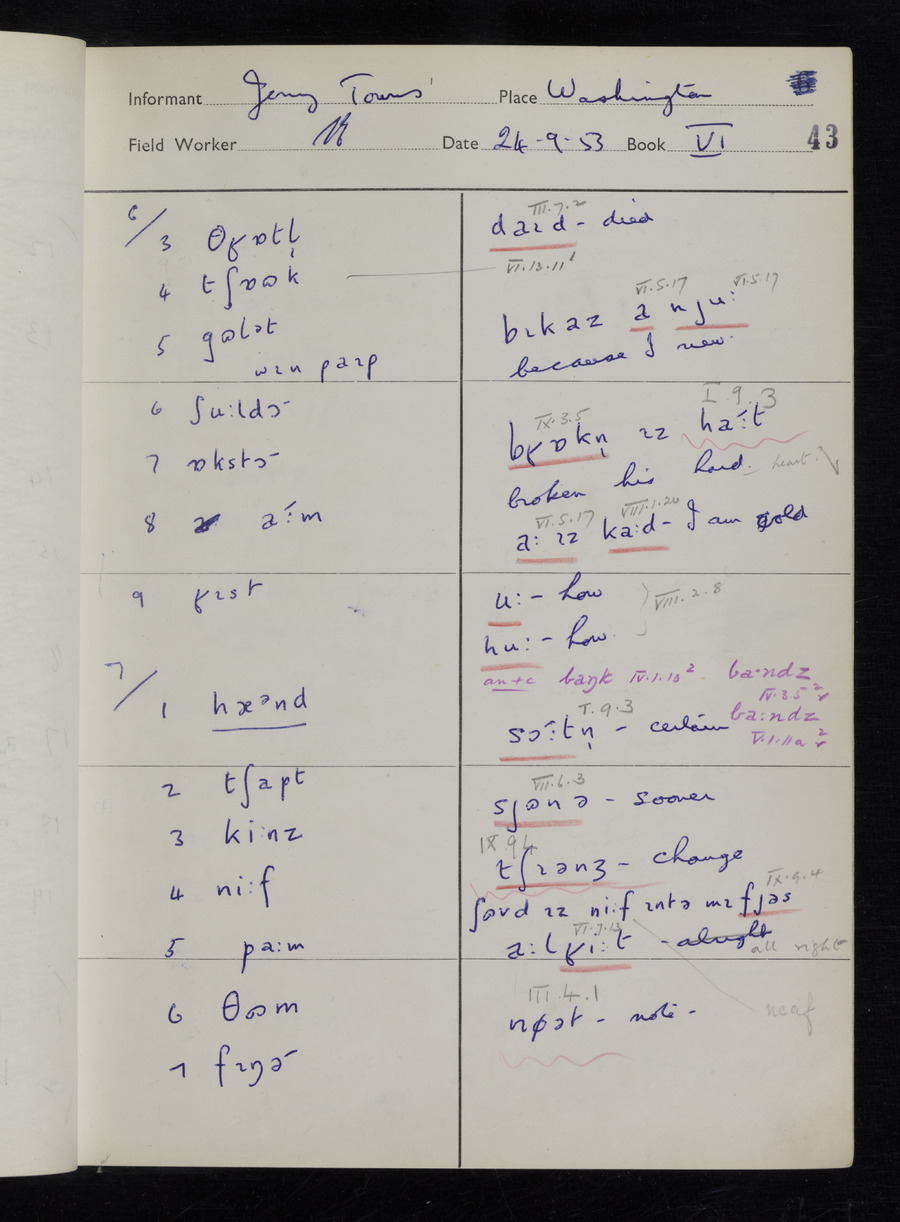 Informant Jenny Towns Place Washington
Field Worker Date 24-9-53 Book VI 43
6/
3 θʁɒtl̩
4 tʃɒɷk
5 gɷlət
wɪn paɪp
6 ʃu:ldɔ
7 ɒkstɔ
8 a:m
9 ʁɪst
7/
1 hæənd
2 tʃapt
3 ki:nz
4 ni:f
5 pa:m
6 θɷm
7 fɪŋə
III.7.2
daɪd - died
VI.13.11
VI.5.17 VI.5.17
bɪkaz a nju:
because I new
I.9.3
IX.3.5
bʁɒkn̩ ɪz ha:t
broken his hard heart?
VI.5.17 VIII.1.20
a: ɪz ka:d - I am cold
u: - how
VIII.2.8
hu: - how
baŋk IV.1.10² ba:ndz
IV.3.5
sɔ:tn̩ - certain ba:ndz
V.1.11a
VII.6.3
sjɷnə - sooner
IX.9.4
tʃɪənʒ - change
IX.9.4
ʃɷvd ɪz ni:f ɪntə mɪ fjəs
VI.7.13
a:lʁi:t - alright all right
III.4.1
nøət - note - neaf